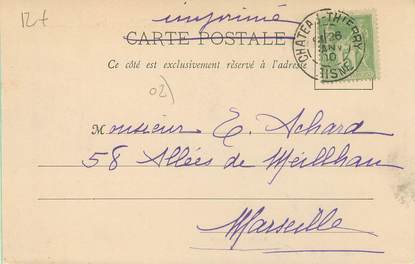 12f
imprimé
CARTE POSTALE
Ce côté est exclusivement réservé à l'adresse
CHATEAU-THIERRY
26
JANV
00
AISNE
02)
Monsieur E. Achard
58 Allées de Meilhan
Marseille